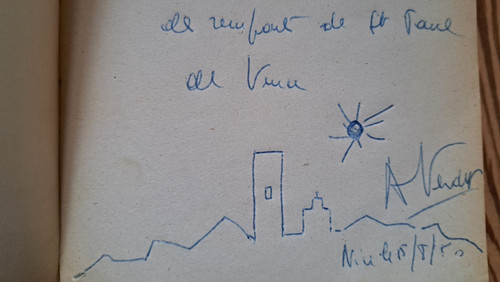 de rempart de St Paul
de Vence
A Verdy
Nice le 15/5/50